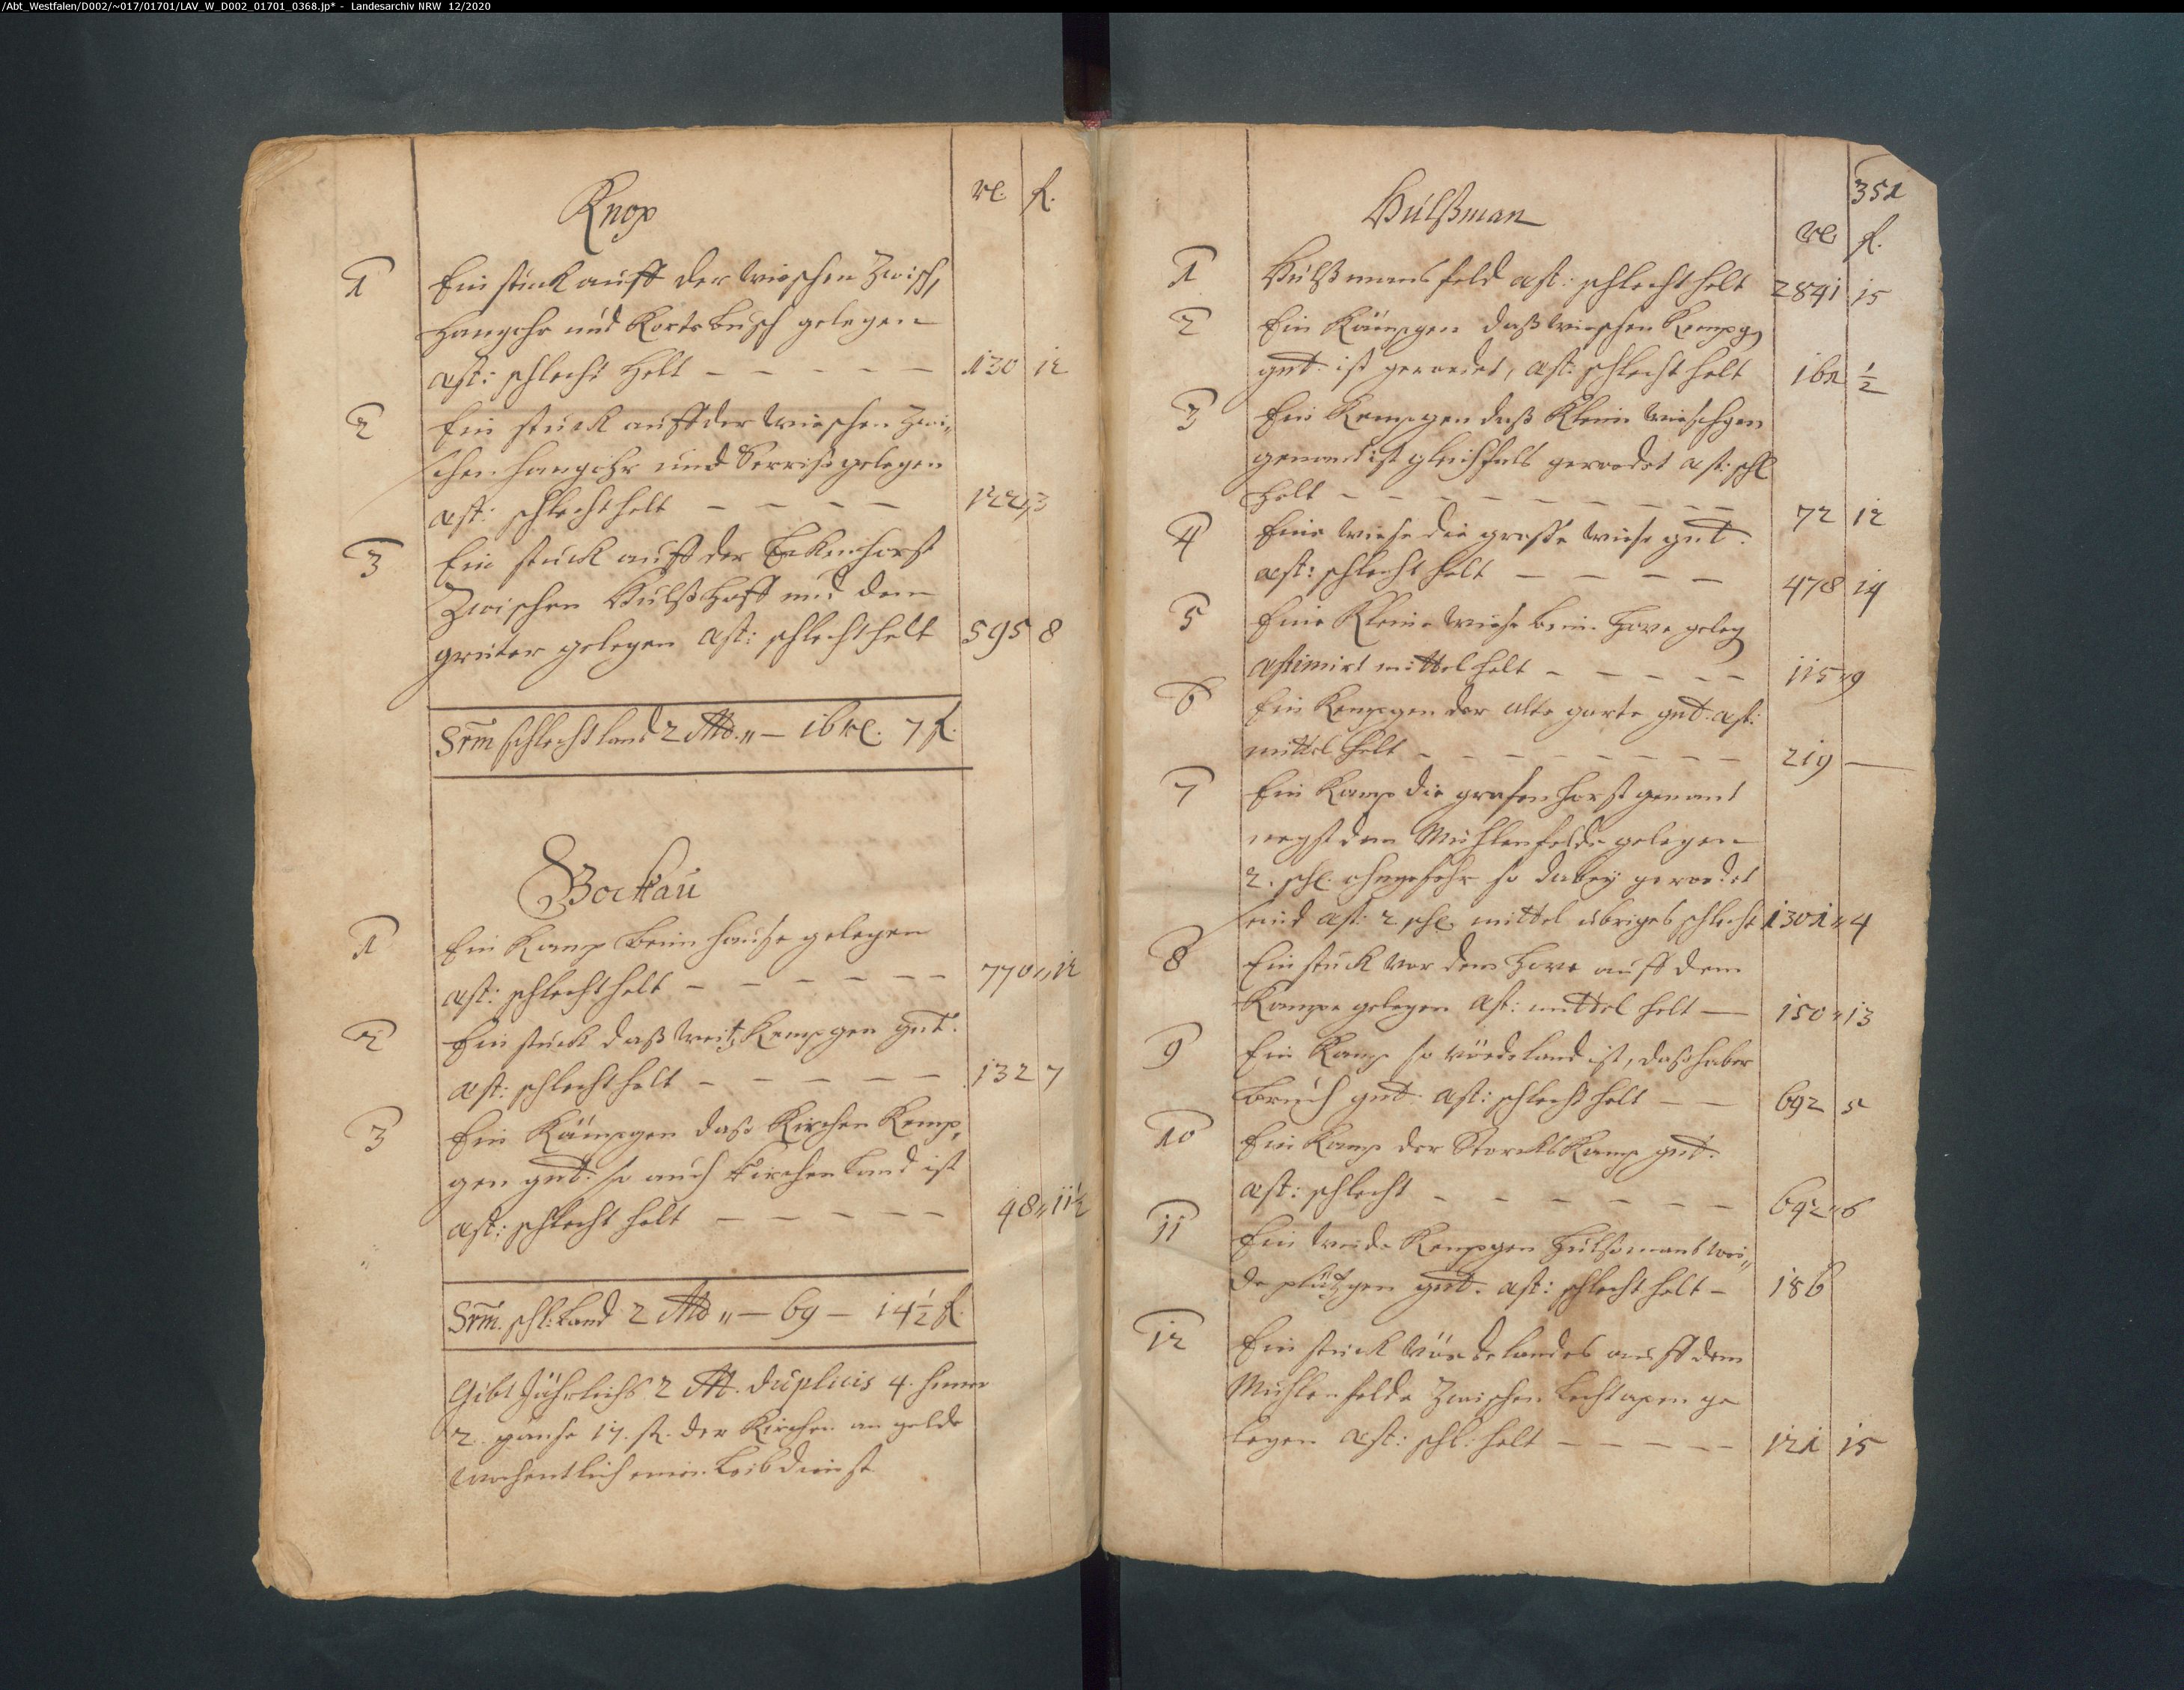 /Abt_Westfalen/D002/~017/01701/LAV_W_D002_01701_0368.jp* - Landesarchiv NRW 12/2020
Knop
rt. f.
1 Ein stuck auff der wieschen Zwisch,
Hangohr und Korts busch gelegen
æst: schlecht helt — — — — — 130 12
2 Ein stuck auff der wieschen Zwi„
schen hangohr und gelegen
æst: schlecht helt — — — — 122„3
3 Ein stuck auff der Eckenhorst
Zwischen Hülßhoff und dem
gruter gelegen æst: schlecht helt 595 8
Srm schlecht land 2 Md. „— 16 rt. 7 f.
Bockau
1 Ein Kamp beim hause gelegen
æst: schlecht helt — — — — — — 770„12
2 Ein stuck daß weitz Kempgen gnt.
æst: schlecht helt — — — — — 132 7
3 Ein Kämpgen daß Kirchen Kemp,
gen gnt. so auch Kirchen Land ist
æst: schlecht helt — — — — — 48„11½
Srm. schl: Land 2 Md „— 69 — 14½ f.
Gibt Jährlichs 2 M. duplicis 4. hüner
2. gänse 17. ß. der Kirchen an gelde
wochentlich einen Leibdienst
351
Hülßman
rt. f.
1 Hülßmans feld æst: schlecht helt 2841 15
2 Ein Kämpgen daß wieschen Kempg
gnt. ist geroedet, æst: schlecht helt 161 ½
3 Ein Kempgen daß Klein wieschgen
genand ist gleichfals geroedet æst: schl
helt — — — — — — — — 72 12
4 Eine wiese die grosse wiese gnt.
æst: schlecht helt — — — — 478 14
5 Eine Kleine wiese beim Hove geleg
æstimirt mittel helt — — — — — 115„9
6 Ein Kempgen der alte garte gnt. æst:
mittel helt — — — — — — — — 219 —
7 Ein Kamp die grafenhorst genant
negst dem Muhlenfelde gelegen
2. schl. ohngefehr so dabey geroedet
sind æst: 2 schl. mittel ubriges schlecht 1301„4
8 Ein stuck vor dem Hove auff dem
Kampe gelegen æst: mittel helt — 150„13
9 Ein Kamp so vöedeland ist, daß haber
bruch gnt. æst: schlecht helt — — 692 5
10 Ein Kamp der Storcks Kamp gnt.
æst: schlecht — — — — — — 692„6
11 Ein weide Kempgen Hülßmans wei„
de plätzgen gnt. æst: schlecht helt — 186
12 Ein stuck vöedelandes auff dem
Muhlenfelde Zwischen Lechtapen ge
legen æst: schl. helt — — — — — 121 15